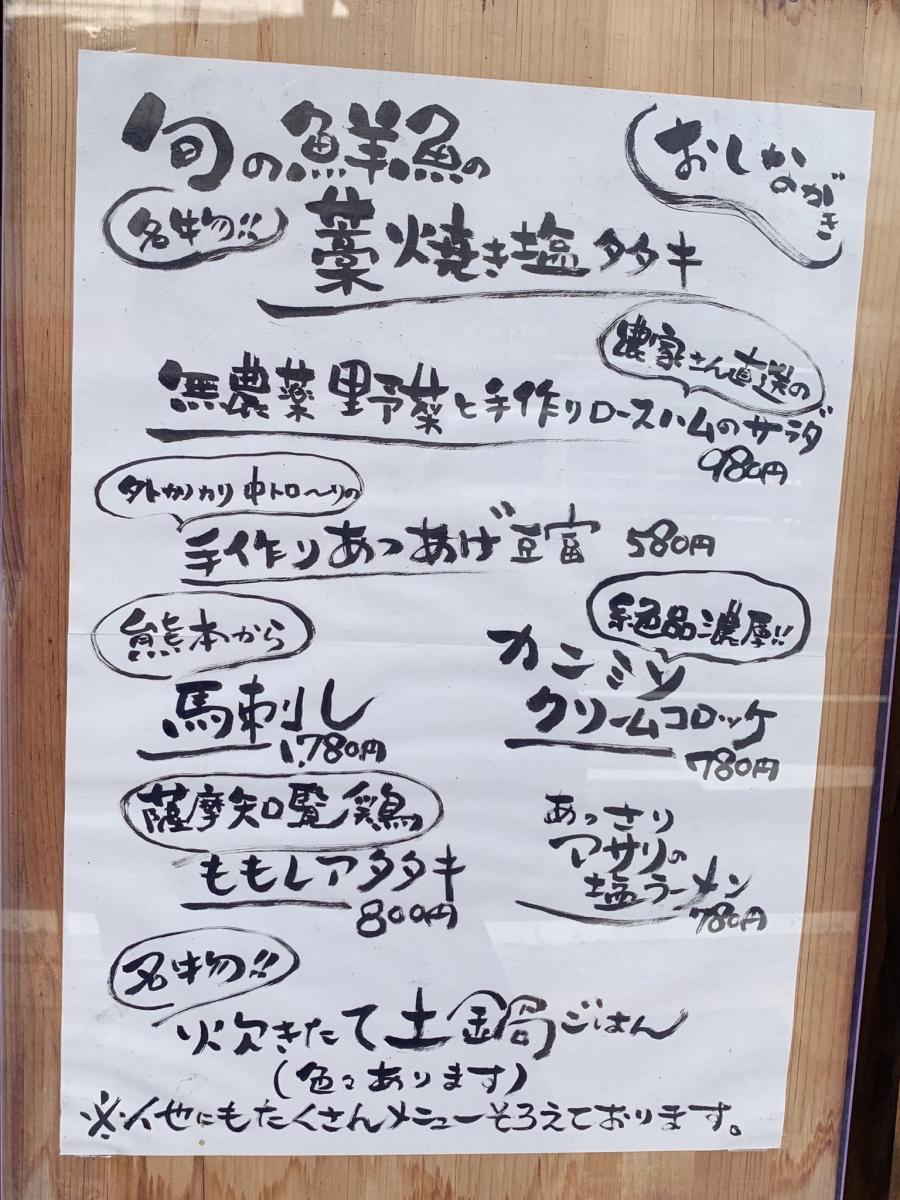 おしながき
旬の鮮魚の
名物!!
藁焼き塩タタキ
農家さん直送の
無農薬野菜と手作りロースハムのサラダ
980円
外カリカリ中トロ〜リの
手作りあつあげ豆富 580円
熊本から
馬刺し
1,780円
絶品濃厚!!
カニミソ
クリームコロッケ
780円
薩摩知覧鶏
ももレアタタキ
800円
あっさり
アサリの
塩ラーメン
780円
名物!!
炊きたて土鍋ごはん
(色々あります)
※他にもたくさんメニューそろえております。